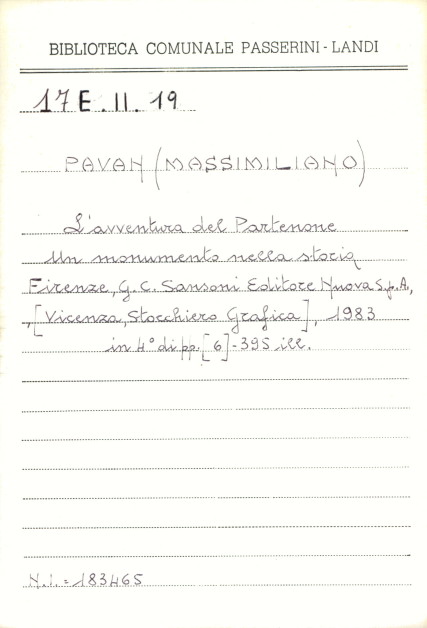 BIBLIOTECA COMUNALE PASSERINI-LANDI
17 E. II. 19
PAVAN (MASSIMILIANO)
L'avventura del Partenone
Un monumento nella storia
Firenze, G. C. Sansoni Editore Nuova S.p.A,
,[Vicenza, Stocchiero Grafica], 1983
in 4° di pp. [6]-395 ill.
N.i. = 183465